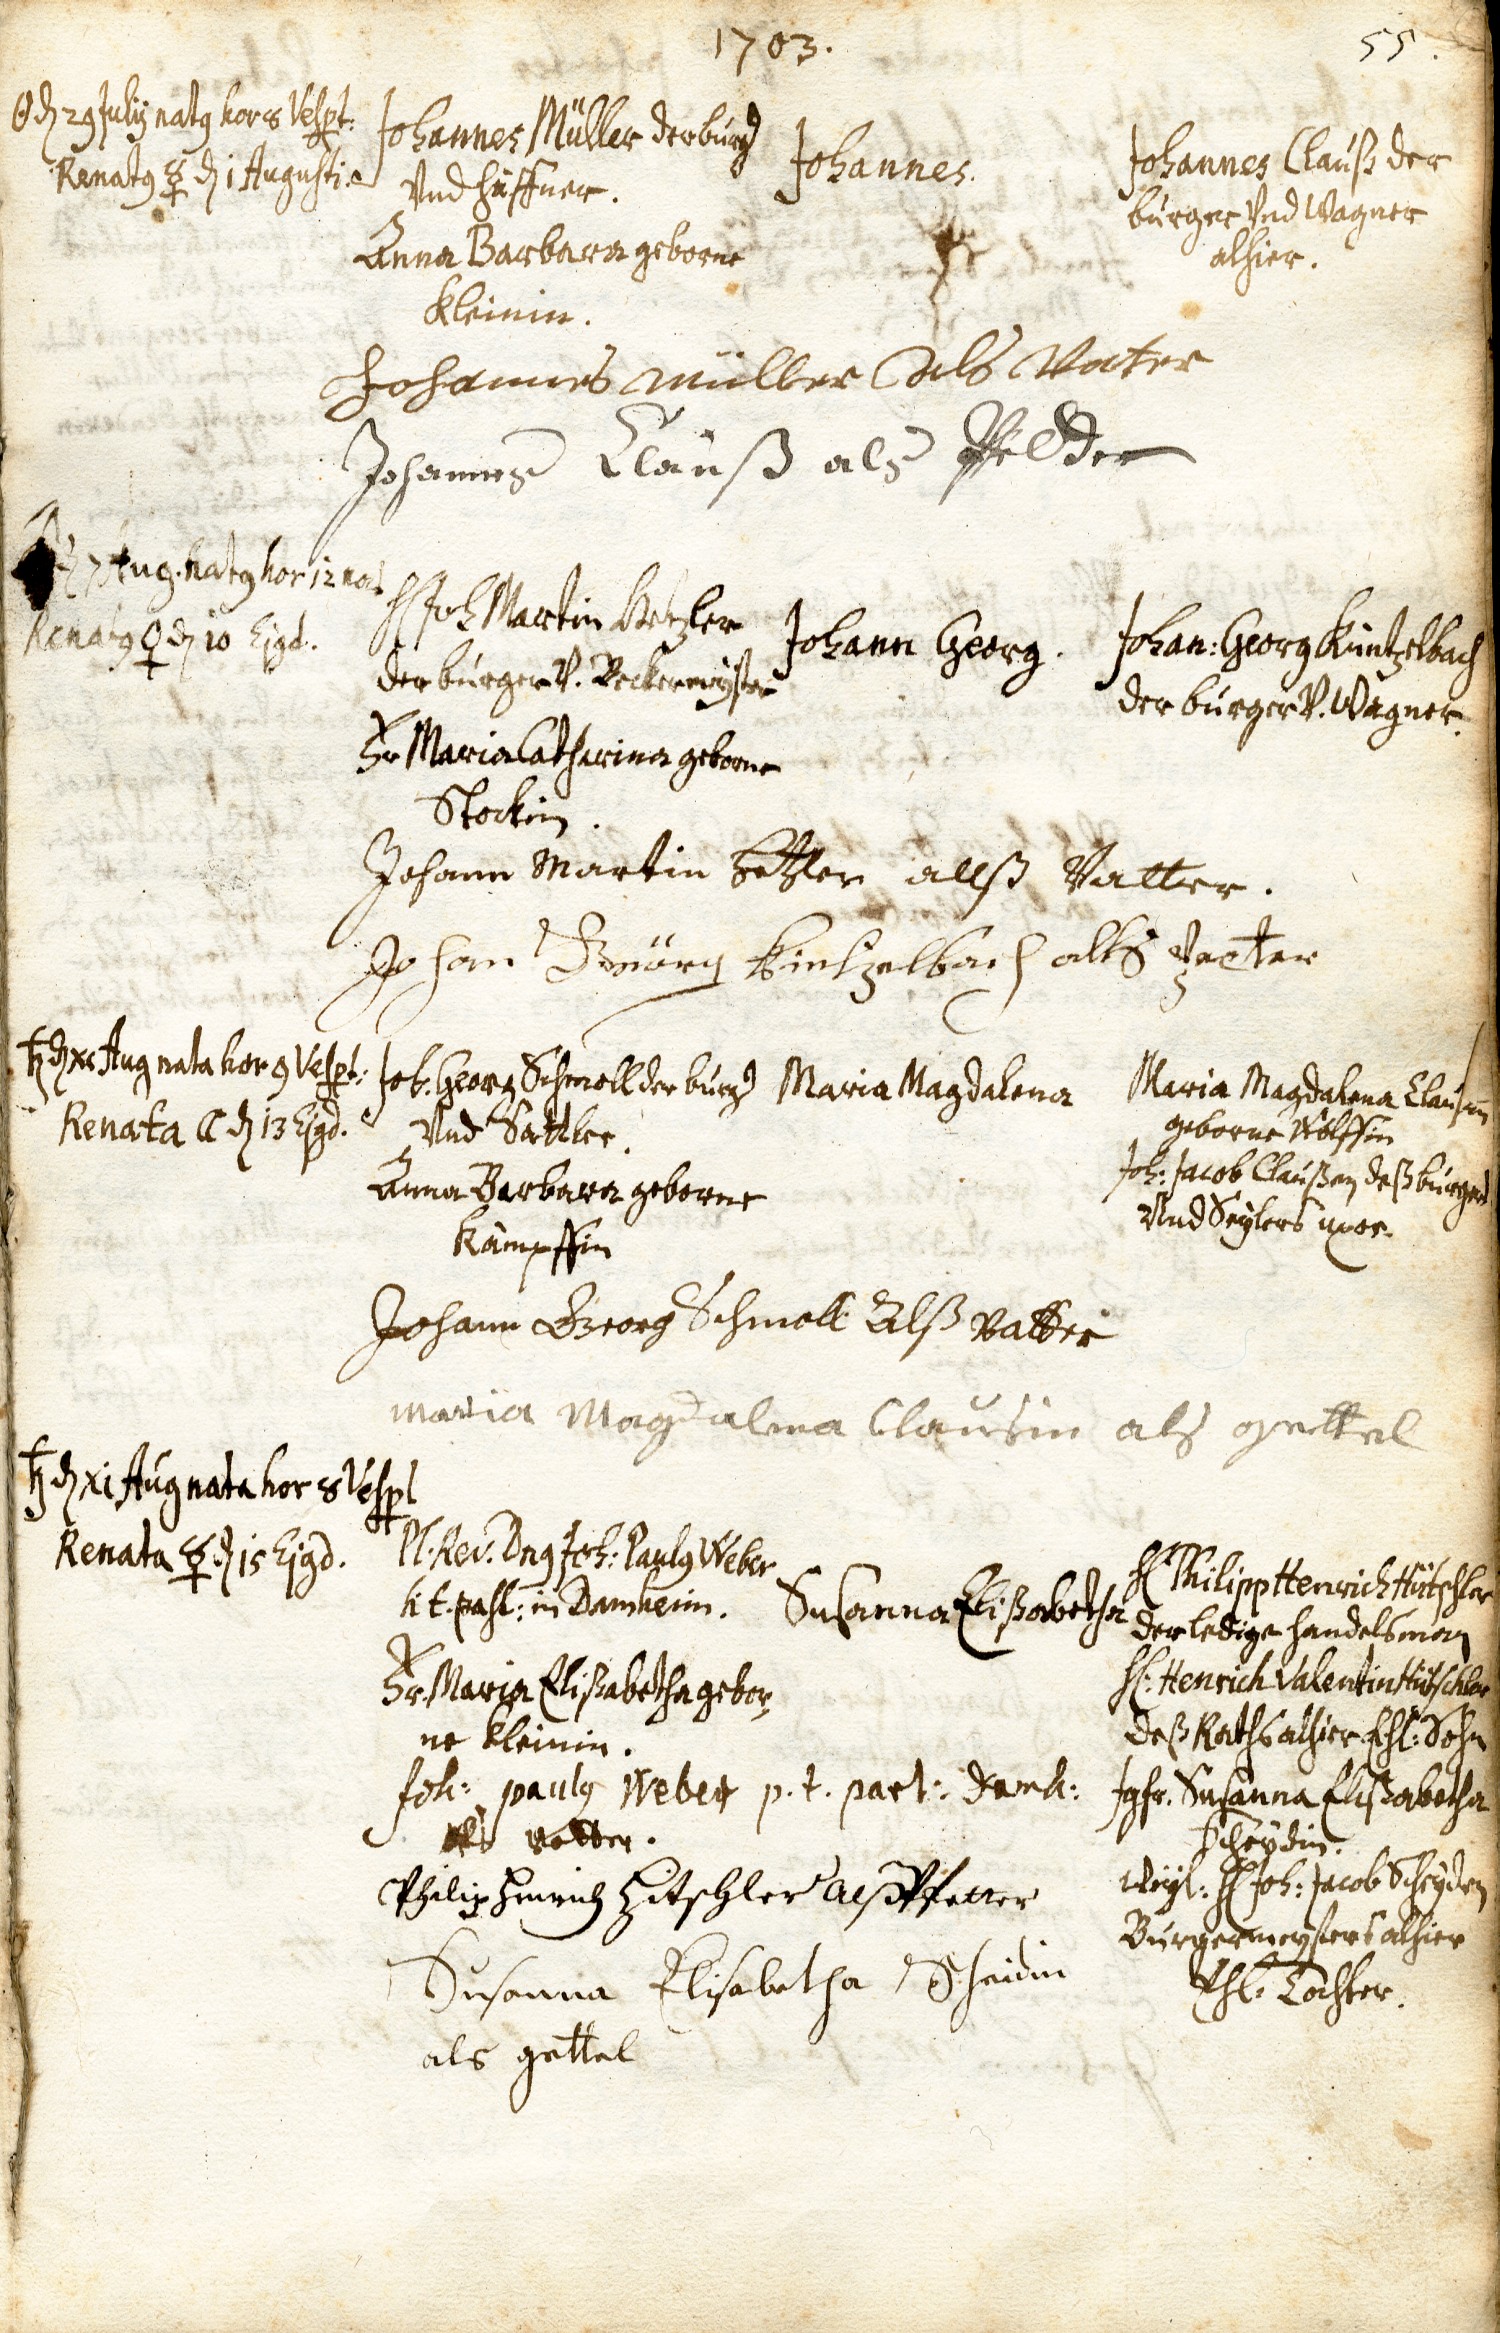 1703.
55.
☉ dē 29 Julij natg hor 8 Vespt:
Renatg ☿ dē 1 Augusti.
Johannes Müller der burg
Vnd haffner.
Anna Barbara geborne
Kleinin.
Johannes.
Johannes Clauß der
burger Vnd Wagner
alhier.
Johannes Müller als Vater
Johannes Clauß als Pfelder
7 Aug. natg hor 12 noct
Renatg ♀ dē 10 Ejgd.
H Joh Martin Hetzler
der burger V. Beckermeyster
Fr Maria Catharina geborne
Stockin.
Johann Georg.
Johan: Georg Kuntzelbach
der burger V. Wagner.
Johann Martin Hetzler allß Vatter.
Johan Geörg Kintzelbach alls
♄ dē xi Aug nata hor 9 Vespt:
Renata ☾ dē 13 Ejgd.
Joh: Georg Schmoll der burg
Vnd Sattler.
Anna Barbara geborne
Kämpffin
Maria Magdalena
Maria Magdalena Claußin
geborne Wolffin
Joh: Jacob Claußen deß burgers
Vnd Seylers uxor.
Johann Georg Schmoll Alß Vatter
maria Magdalena Clausin als gettel
♄ dē xi Aug nata hor 8 Vespt
Renata ☿ dē 15 Ejgd.
Pl: Rev: Dng Joh: Paulg Weber
h t. past: in Damheim.
Fr. Maria Elisabetha gebor,
ne Kleinin.
Susanna Elisabetha
H Philipp Henrich Hütschler
der ledige handelsman
H: Henrich Valentin Hütschler
deß Raths alhier Ehl: Sohn
Jgfr. Susanna Elisabetha
Scheydin.
Weyl: H Joh: Jacob Scheyden
Burgermeysters alhier
Ehl: Tochter.
Joh: paulg Weber p. t. past: damh:
als vatter.
Philip Henrich Hitschler alß Pfetter
Susanna Elisabetha Scheidin
als gettel